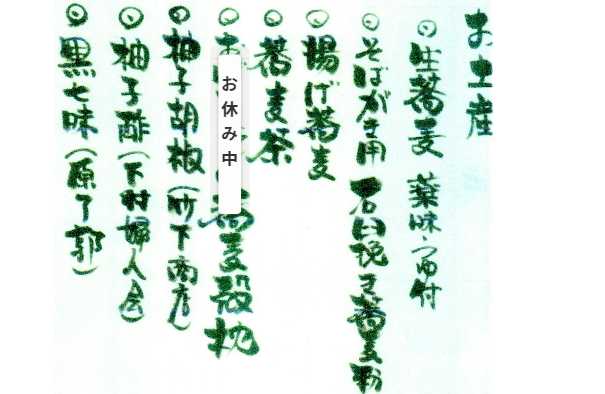 お土産
◎生蕎麦 薬味・つゆ付
◎そばがき用 石臼挽き蕎麦粉
◎揚げ蕎麦
◎蕎麦茶
◎お 蕎麦殻枕
お休み中
◎柚子胡椒(竹下商店)
◎柚子酢(下村婦人会)
◎黒七味(原了郭)